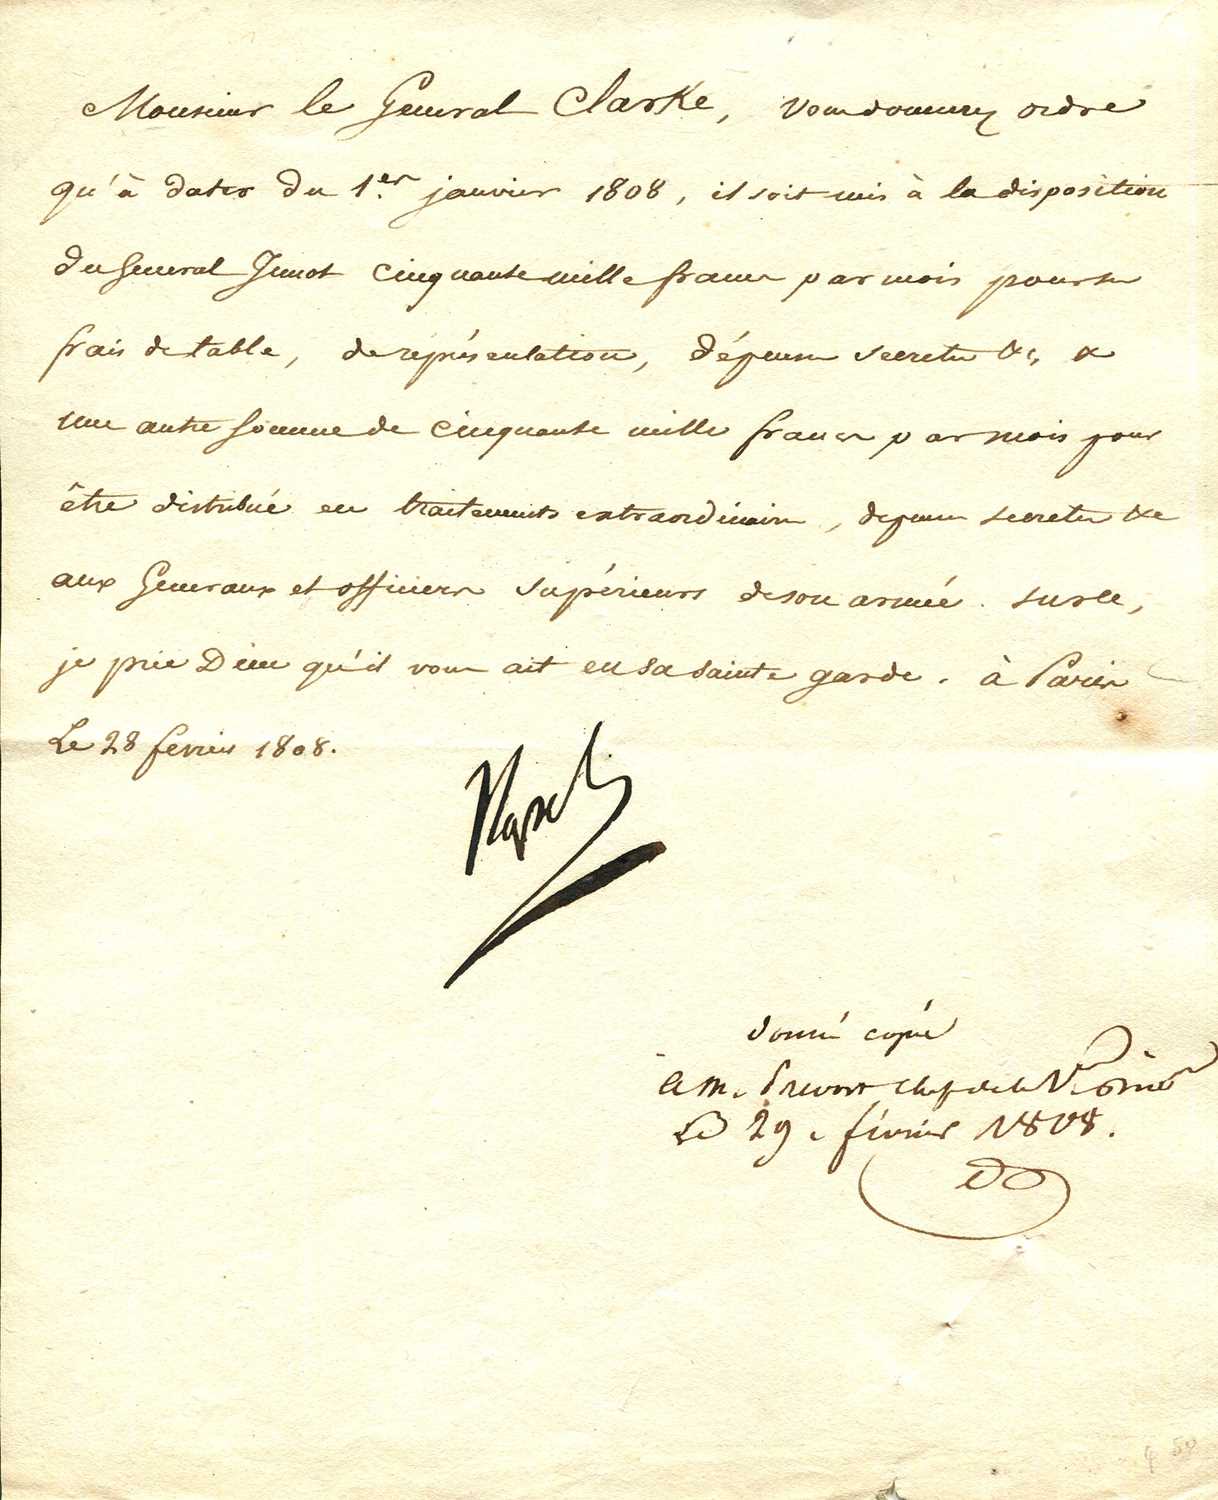 Monsieur le General Clarke, vous donnerez ordre
qu'à dater du 1er. janvier 1808, il soit mis à la disposition
du General Junot cinquante mille francs par mois pour ses
frais de table, de représentation, dépenses secretes &c, &
une autre somme de cinquante mille francs par mois pour
être distribué en traitements extraordinaires, depenses secretes &c
aux Generaux et officiers supérieurs de son armée. sur ce,
je prie Dieu qu'il vous ait en sa sainte garde. à Paris
Le 28 fevrier 1808.
Napol
donné copie
à M. Prevost chef de la
Le 29 février 1808.
50